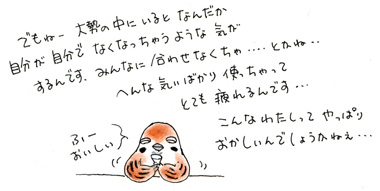 でもねー 大勢の中にいると なんだか
自分が自分で なくなっちゃうような 気が
するんです. みんなに合わせなくちゃ‥‥とかね‥
へんな気ぃばかり 使っちゃって
とても 疲れるんです…
こんなわたしって やっぱり
おかしいんでしょうかねぇ…
ふー
おいしい